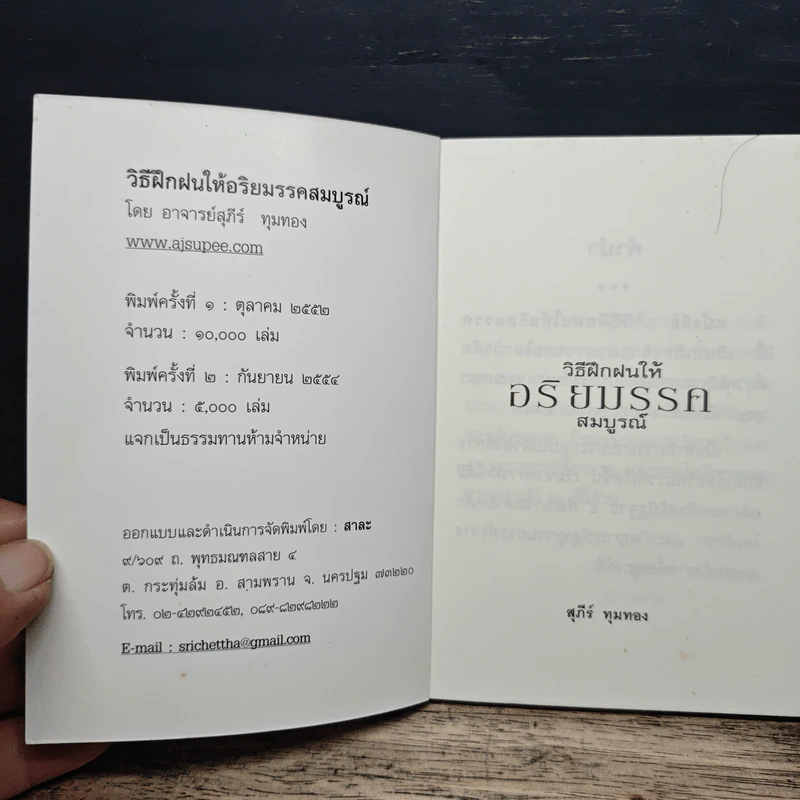 วิธีฝึกฝนให้อริยมรรคสมบูรณ์
โดย อาจารย์สุภีร์ ทุมทอง
www.ajsupee.com
พิมพ์ครั้งที่ ๑ : ตุลาคม ๒๕๕๒
จำนวน : ๑๐,๐๐๐ เล่ม
พิมพ์ครั้งที่ ๒ : กันยายน ๒๕๕๔
จำนวน : ๕,๐๐๐ เล่ม
แจกเป็นธรรมทานห้ามจำหน่าย
ออกแบบและดำเนินการจัดพิมพ์โดย : สาละ
๙/๖๐๙ ถ. พุทธมณฑลสาย ๔
ต. กระทุ่มล้ม อ. สามพราน จ. นครปฐม ๗๓๒๒๐
โทร. ๐๒-๔๒๙๒๔๕๒, ๐๘๙-๘๒๙๘๒๒๒
E-mail : srichettha@gmail.com
วิธีฝึกฝนให้
อริยมรรค
สมบูรณ์
สุภีร์ ทุมทอง